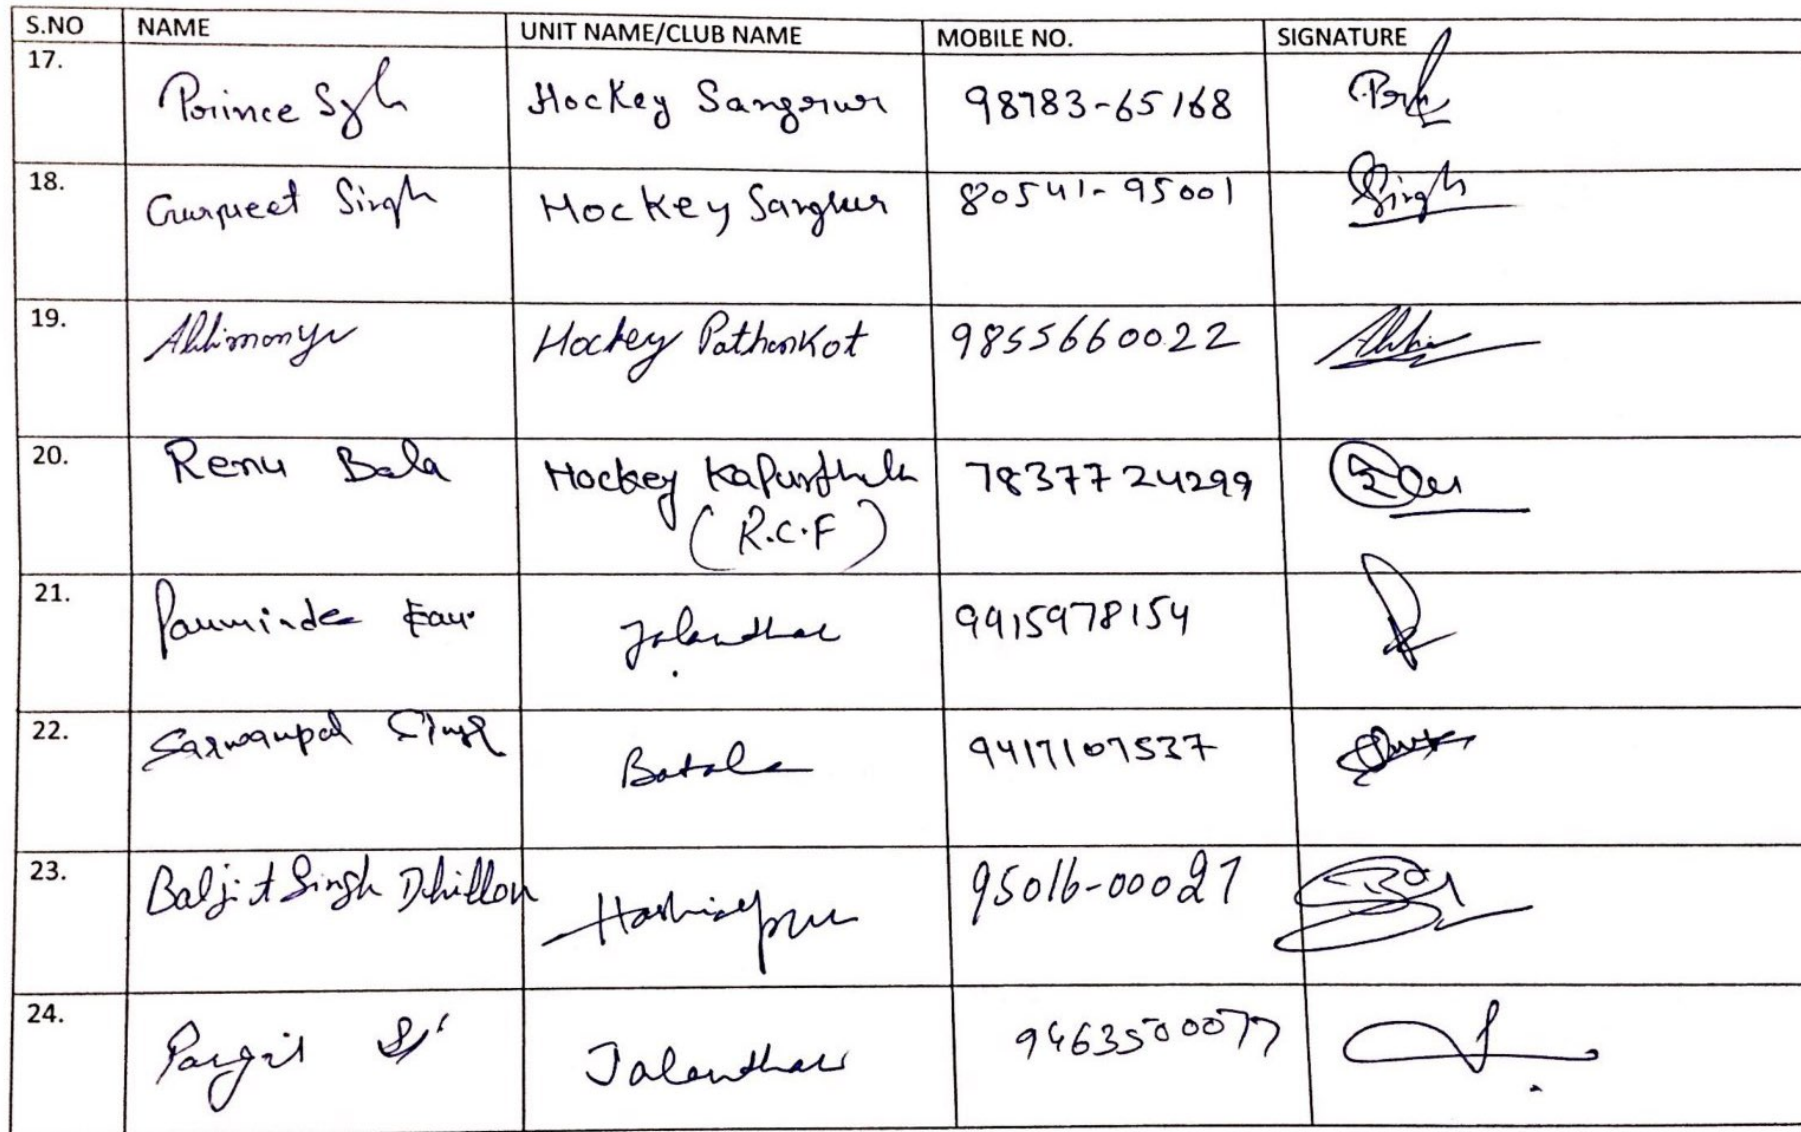 S.NO NAME UNIT NAME/CLUB NAME MOBILE NO. SIGNATURE
17. Prince Sgh Hockey Sangrur 98783-65168
18. Gurpreet Singh Hockey Sangrur 80541-95001 Singh
19. Abhimanyu Hockey Pathankot 9855660022
20. Renu Bala Hockey Kapurthala 7837724299
(R.C.F)
21. Parminder Kaur Jalandhar 9915978154
22. Sarwanpal Singh Batala 9417107537
23. Baljit Singh Dhillon Hoshiarpur 95016-00027
24. Jalandhar 9463500077